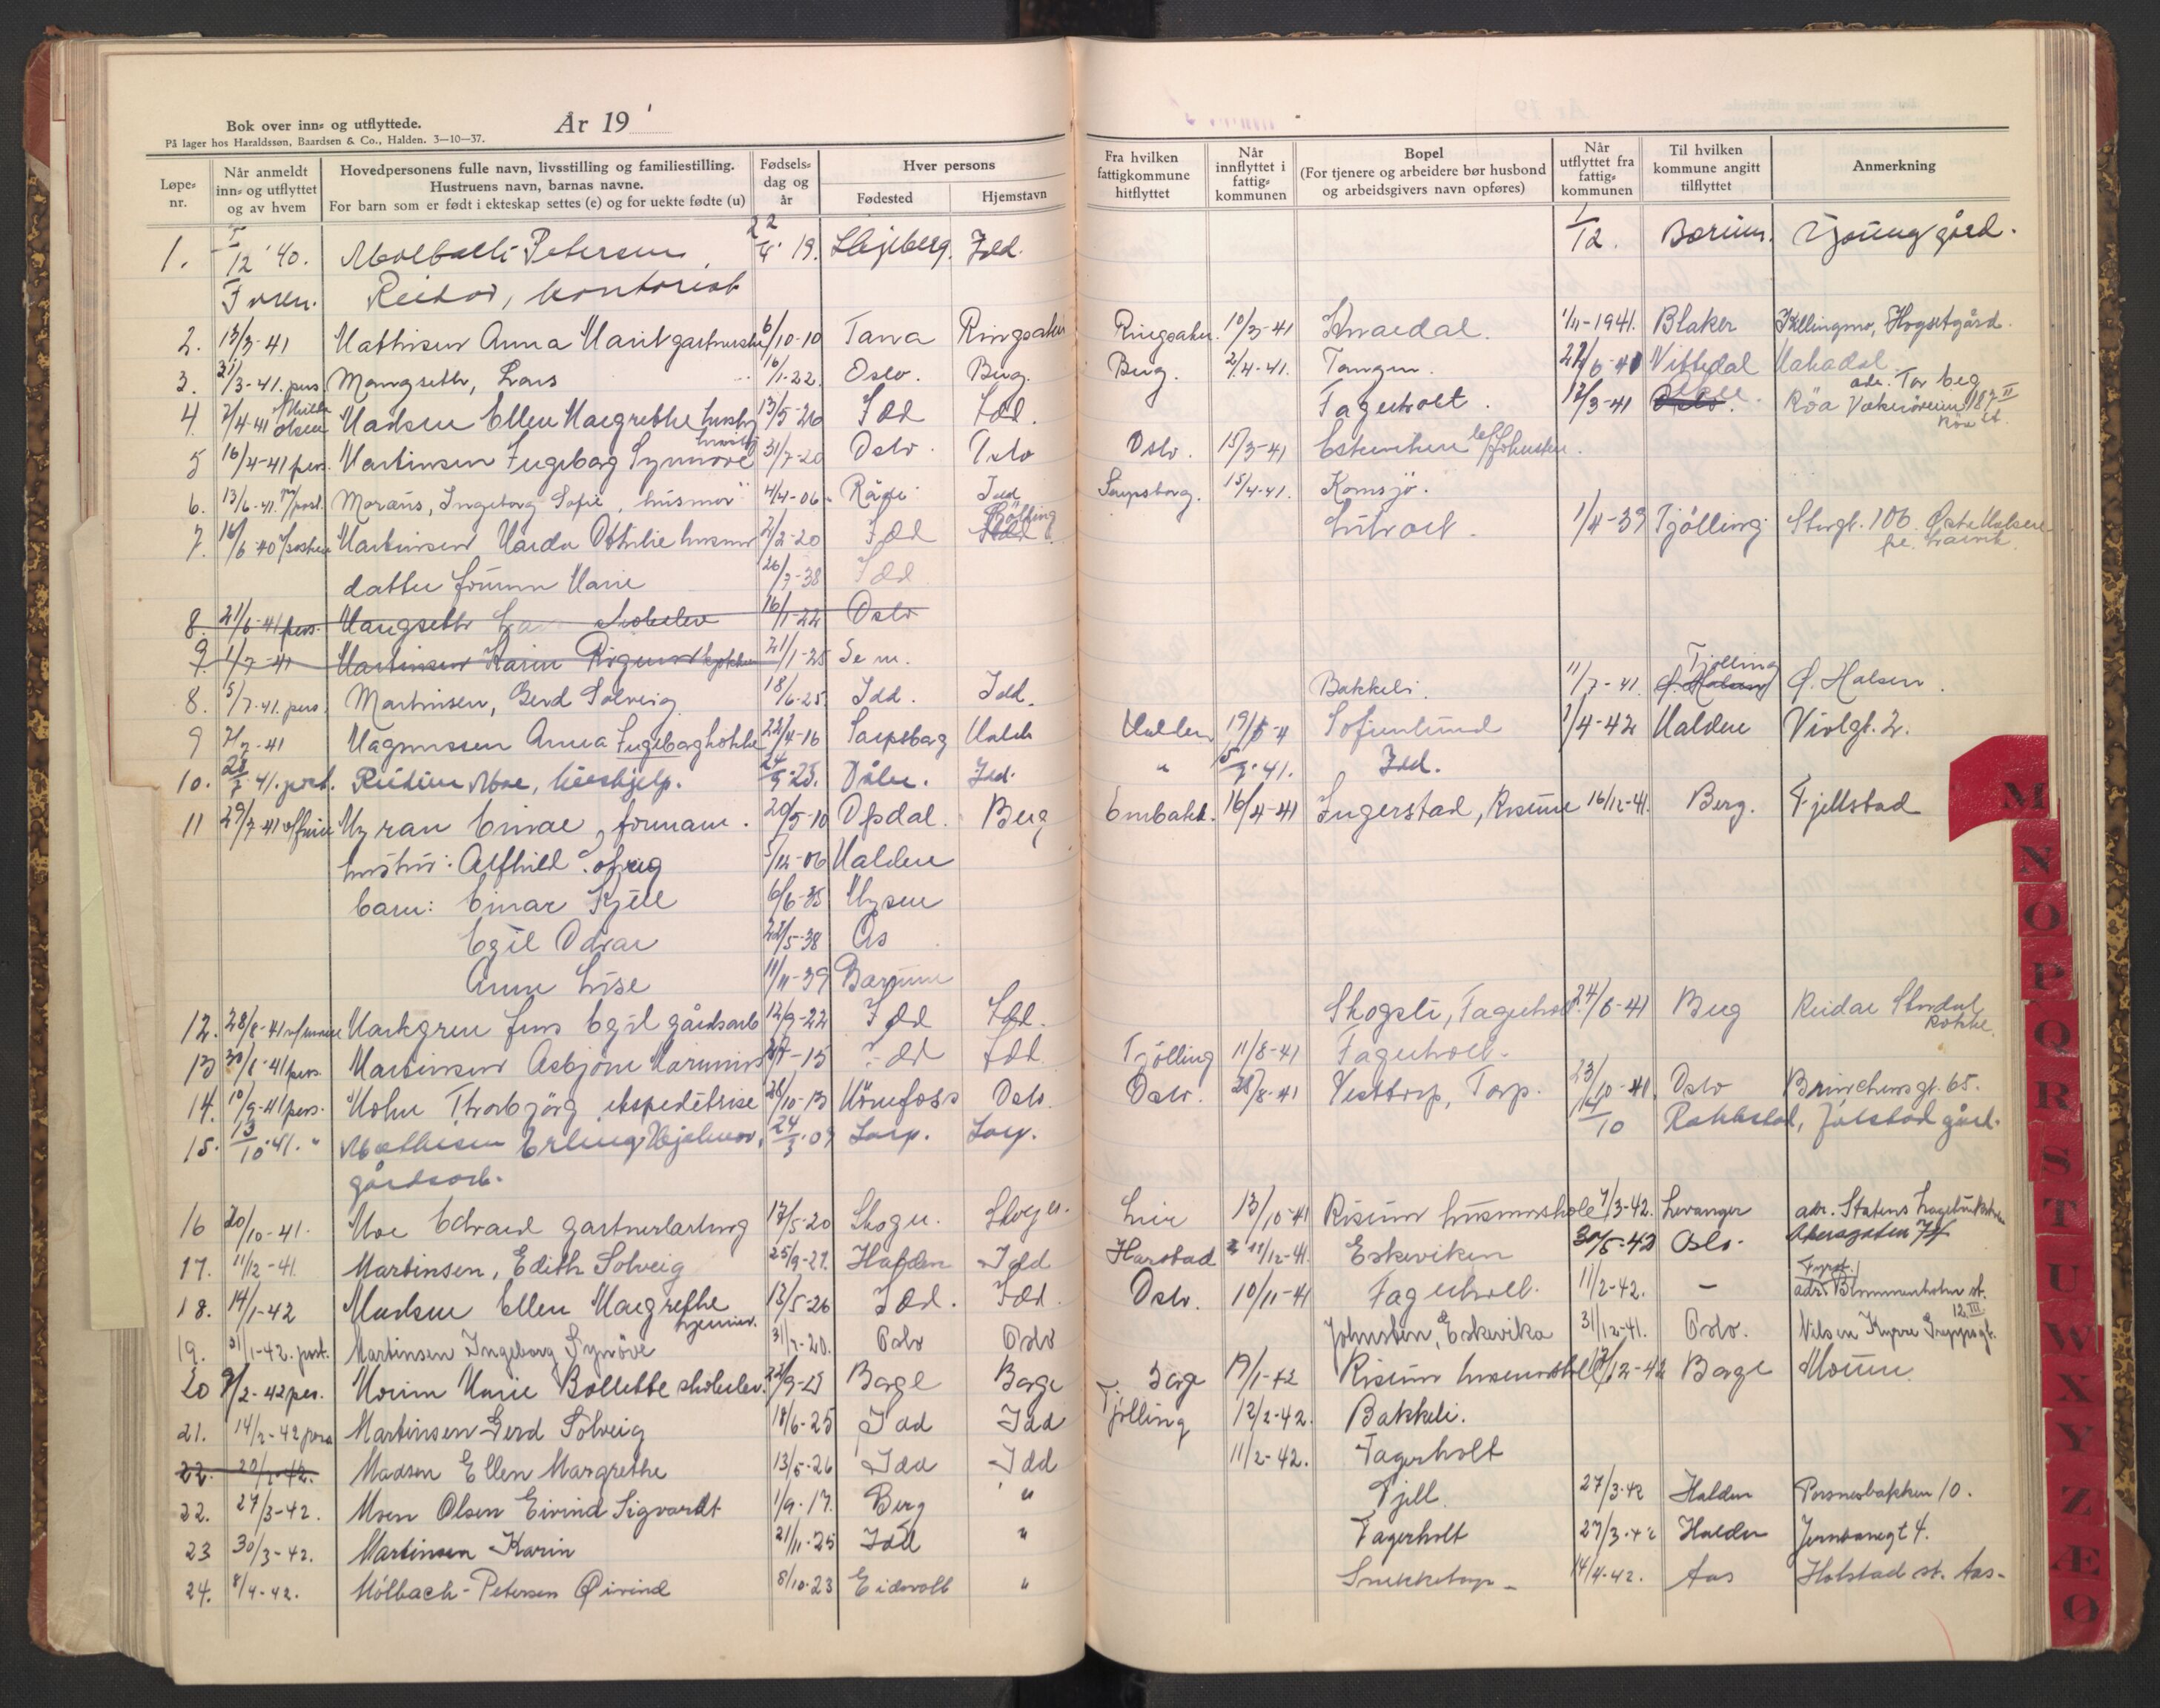 Bok over inn- og utflyttede.
På lager hos Haraldssøn, Baardsen & Co., Halden. 3—10—37.
År 19
Løpe-nr. Når anmeldt inn- og utflyttet og av hvem Hovedpersonens fulle navn, livsstilling og familiestilling. Hustruens navn, barnas navne. For barn som er født i ekteskap settes (e) og for uekte fødte (u) Fødsels-dag og år Hver persons Fødested Hjemstavn Fra hvilken fattigkommune hitflyttet Når innflyttet i fattig-kommunen Bopel (For tjenere og arbeidere bør husbond og arbeidsgivers navn opføres) Når utflyttet fra fattig-kommunen Til hvilken kommune angitt tilflyttet Anmerkning
1. 1/12 '40. Petersen 22/4 19. Skjeberg. Idd. 1/12. Bærum.
Reidar, kontorist
2. 13/3-41 Mathisen Anna Marit 6/10-10 Tana Ringsaker Ringsaker. 10/3-41 1/11-1941. Blaker
3. 31/3-41. pers. Mangseth, Lars 16/1-22. Oslo. Berg. Berg. 2/4-41. Tangen. Nittedal Hakadal
4. 7/4-41 Olsen Madsen Ellen Margrethe 13/5-26 Idd Idd. Fagerholt. 12/3-41 Røa
5 16/4-41 pers. Martinsen Ingeborg Synnøve 31/7-20 Oslo. Oslo Oslo. 15/3-41 Eskeviken Johnsten.
6. 13/6-41. post. Moræus, Ingeborg Sofie, husmor 4/4-06. Råde Idd Sarpsborg. 15/4-41. Kornsjø.
7. 16/6-40 Martinsen Ottilie husmor 2/2-20 Idd Tjølling 1/4-39 Tjølling. Storgt. 106. Østre Halsen
datter Marie 26/7-38 Idd
8. 21/6-41 pers. Mangseth skoleelev 16/1-22 Oslo
9. 1/7-41 Martinsen Karin 21/1-25 Sem.
8. 5/7-41. pers. Martinsen, Gerd Solveig 18/6-25. Idd. Idd. Bakkeli. 11/7-41. Tjølling Ø. Halsen.
9 Magnussen Anna Ingeborg 22/4-16 Sarpsborg Halden Halden Sofienlund 1/4-42 Halden Violgt. 2.
10. 28/7 41. post. Moe, 24/9-25. Idd. " 5/7-41. Idd.
11 29/7-41 Myran Einar, formann. 20/5-10 Opdal. Berg 16/4-41 Ingerstad, Risum 16/12-41. Berg. Fjellstad
hustru: Alfhild Solveig 5/12-06 Halden
barn: Einar Kjell 6/6-35 Mysen
Egil Odvar 22/5-38 Ås
Anne Lise 11/11-39 Bærum
12. 28/8-41 Markgren Jens Egil gårdsarb 12/9-22 Idd Idd. Skogsli, Fagerholt 24/6-41 Berg Reidar Stordal Rokke.
13 30/8-41 pers. Martinsen Asbjørn 15 Idd Idd. Tjølling 11/8-41 Fagerholt.
14. 10/9-41 pers. Holm Thorbjørg, ekspeditrise 26/10-13 Hønefoss Oslo. Oslo. 28/8-41 Vesttorp, Torp. 23/10-41. Oslo 65.
15. 13/10-41. " Mathisen Erling Hjalmar, 24/3-09 Sarp. Sarp. 14/10 Rakkestad, gård.
gårdsarb.
16 20/10-41. Moe Edvard gartnerlærling 17/5-20 Skogn. Skogn. Lier 13/10-41 Risum husmorskole 7/3-42. Levanger adr. Statens
17. 11/12-41. Martinsen, Edith Solveig 25/9-21. Halden Idd Harstad 11/12-41. Eskeviken 30/5-42 Oslo.
18. 14/1-42 Madsen Ellen Margrethe 13/5-26 Idd. Idd. Oslo. 10/11-41 Fagerholt. 11/2-42. — adr. Blommenholm st.
19. 31/1-42. post. Martinsen Ingeborg Synøve 31/7-20. Oslo Oslo Johnsten, Eskevika 31/12-41. Oslo. Nilsen 12 III
20 9/2-42 pers. Moum Marie Bollette skoleelev. Borge Borge Borge 19/1-42 Risum husmorskole 12-42 Borge Moum.
21. 14/2-42 pers Martinsen Gerd Solveig 18/6-25 Idd Idd Tjølling 12/2-42. Bakkeli.
22. 20/2-42. Madsen Ellen Margrethe 13/5-26 Idd Idd 11/2-42. Fagerholt
22. 27/3-42. Moen Olsen Eivind Sigvardt 1/9-17. Berg " Fjell 27/3-42 Halden Porsnesbakken 10.
23 30/3-42. Martinsen Karin 21/11-25 Idd " Fagerholt 27/3-42 Halden Jernbanegt 4.
24. 8/4-42. Mölbach-Petersen Øivind 8/10-23 Eidsvoll " 14/4-42. Aas Holstad st. Aas-
M
N
O
P
Q
R
S
T
U
W
X
Y
Z
Æ
Ø